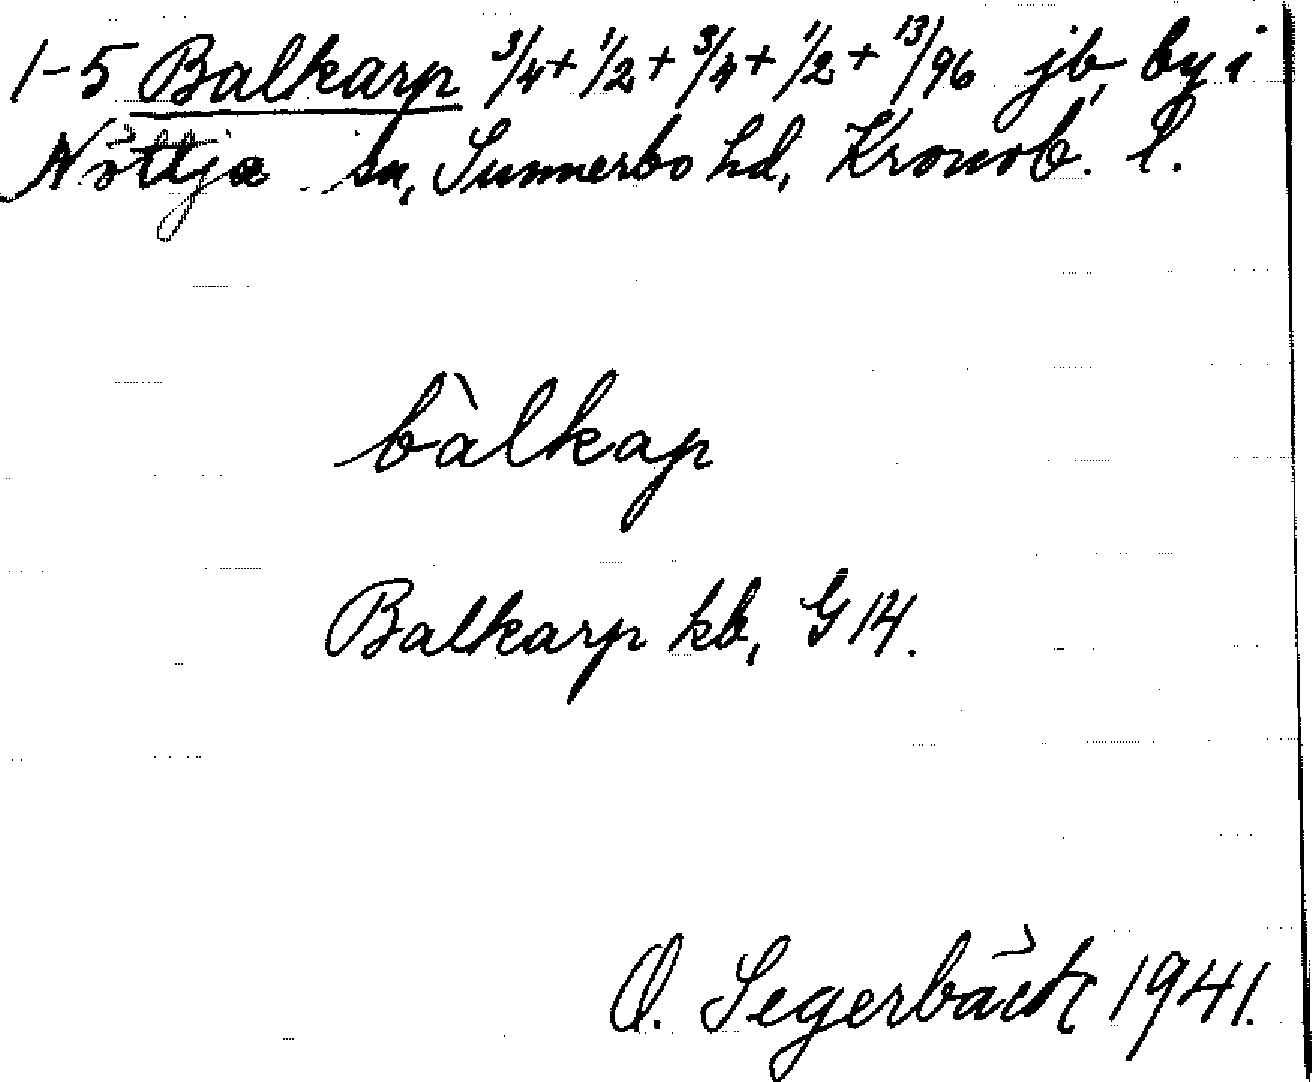 1-5 Balkarp 3/4 + 1/2 + 3/4 + 1/2 + 13/96 jb, by i
Nöttja sn, Sunnerbo hd, Kronob. l.
bàlkap
Balkarp kb, G 14.
O. Segerbäck 1941.